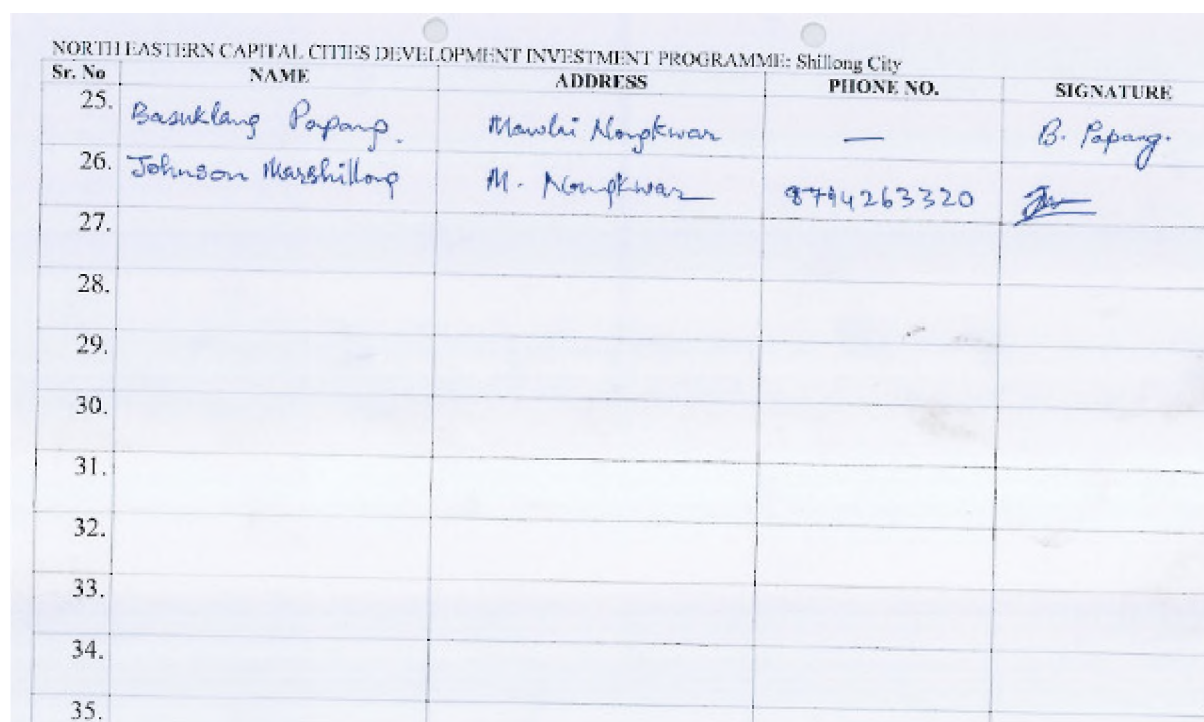 NORTH EASTERN CAPITAL CITIES DEVELOPMENT INVESTMENT PROGRAMME: Shillong City
Sr. No NAME ADDRESS PHONE NO. SIGNATURE
25. Basuklang Papang. Mawlai Nongkwar — B. Papang.
26. Johnson Marshillong M. Nongkwar 8794263320
27.
28.
29.
30.
31.
32.
33.
34.
35.